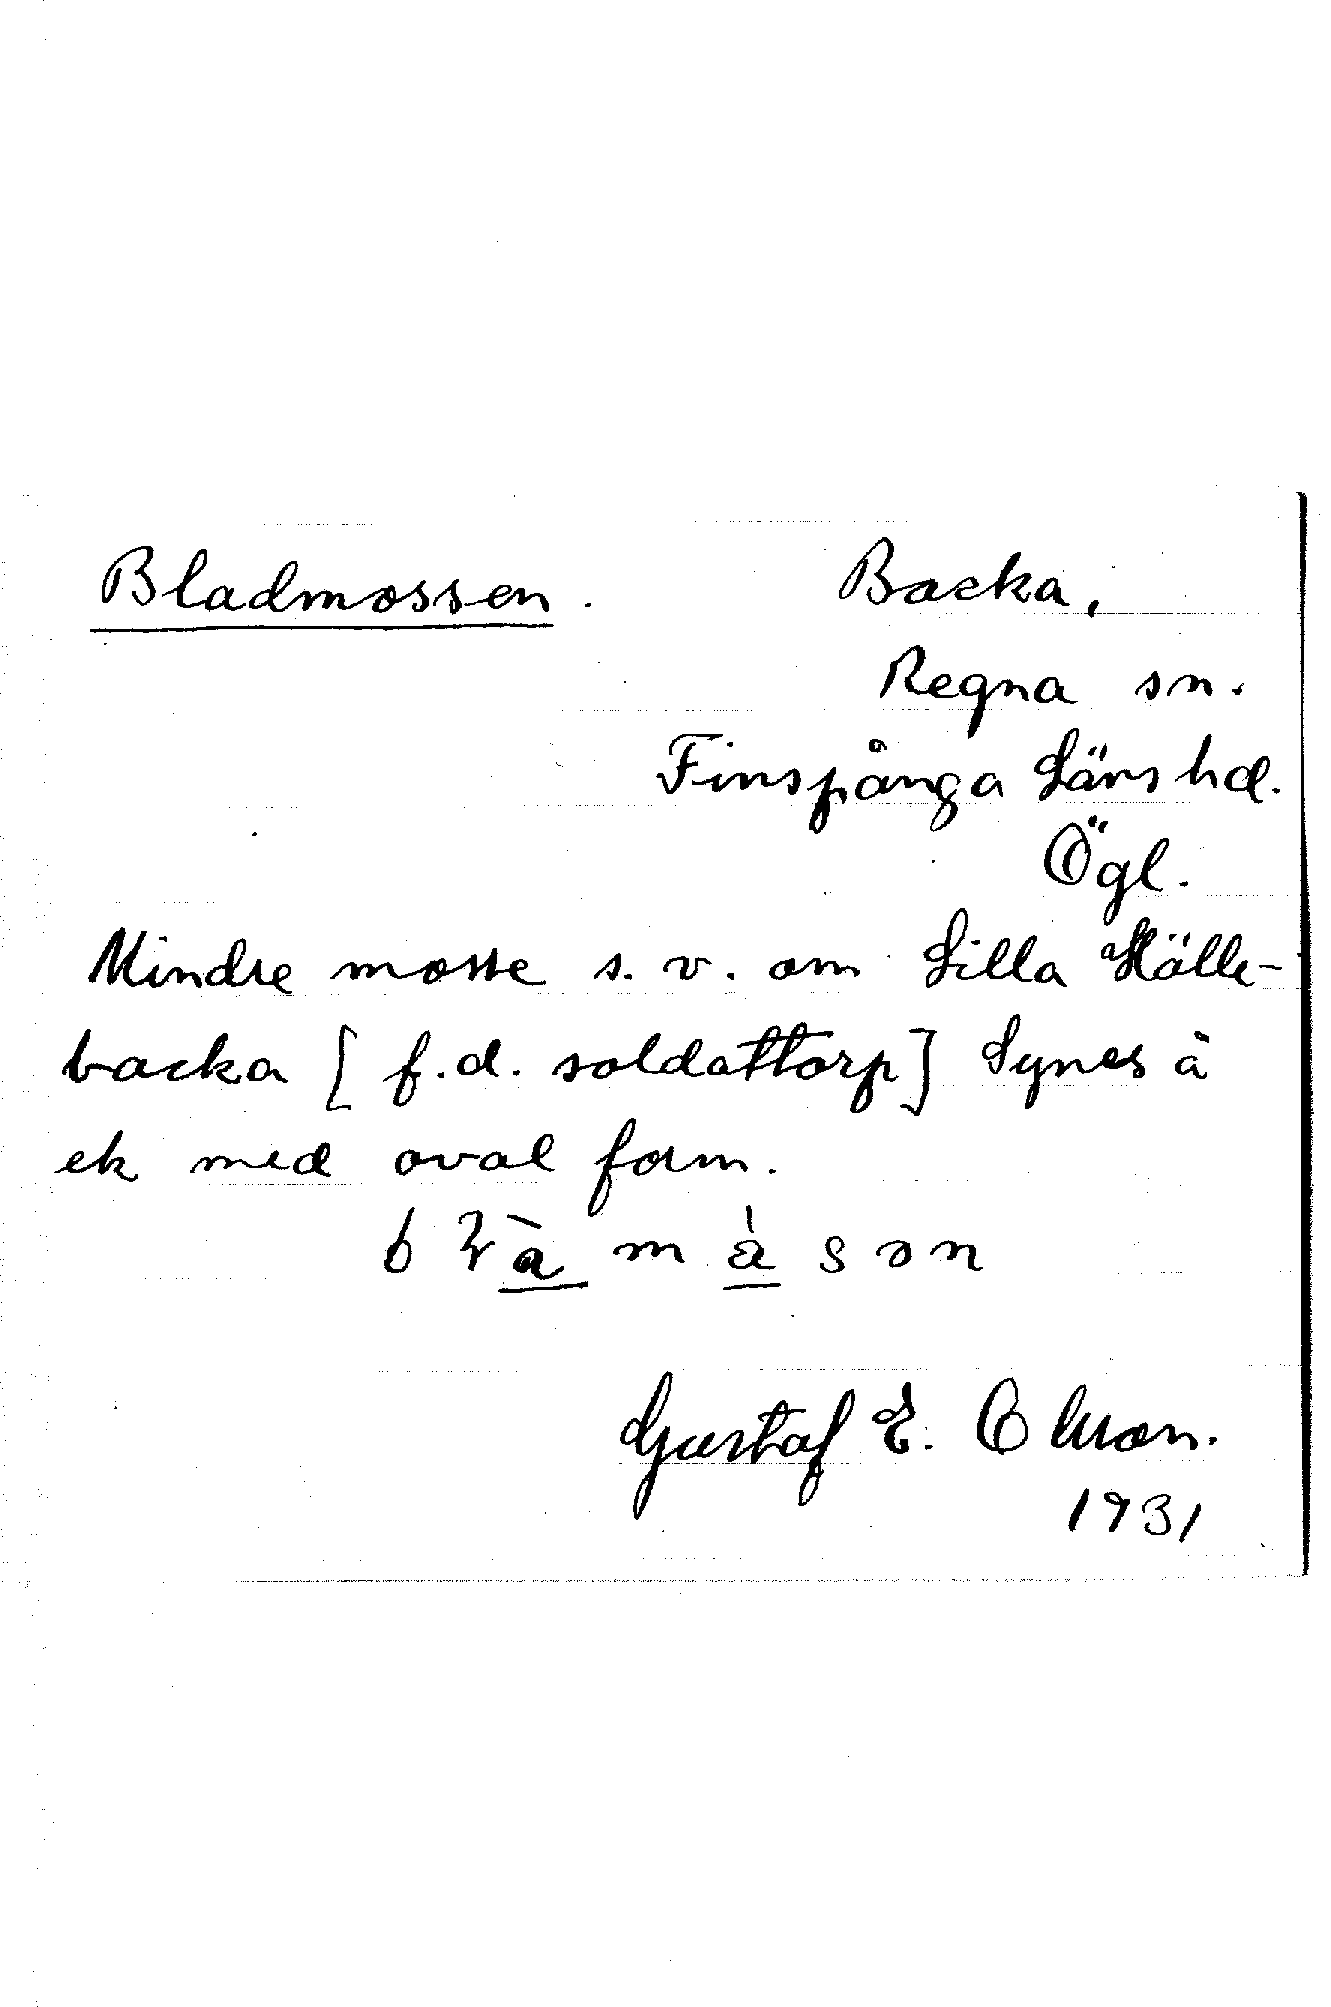 Bladmossen. Backa,
Regna sn.
Finspånga Läns hd.
Ögl.
Mindre mosse s.v. om Lilla Hälle-
backa [f.d. soldattorp] Synes å
ek med oval form.
Gustaf E. Olsson.
1931